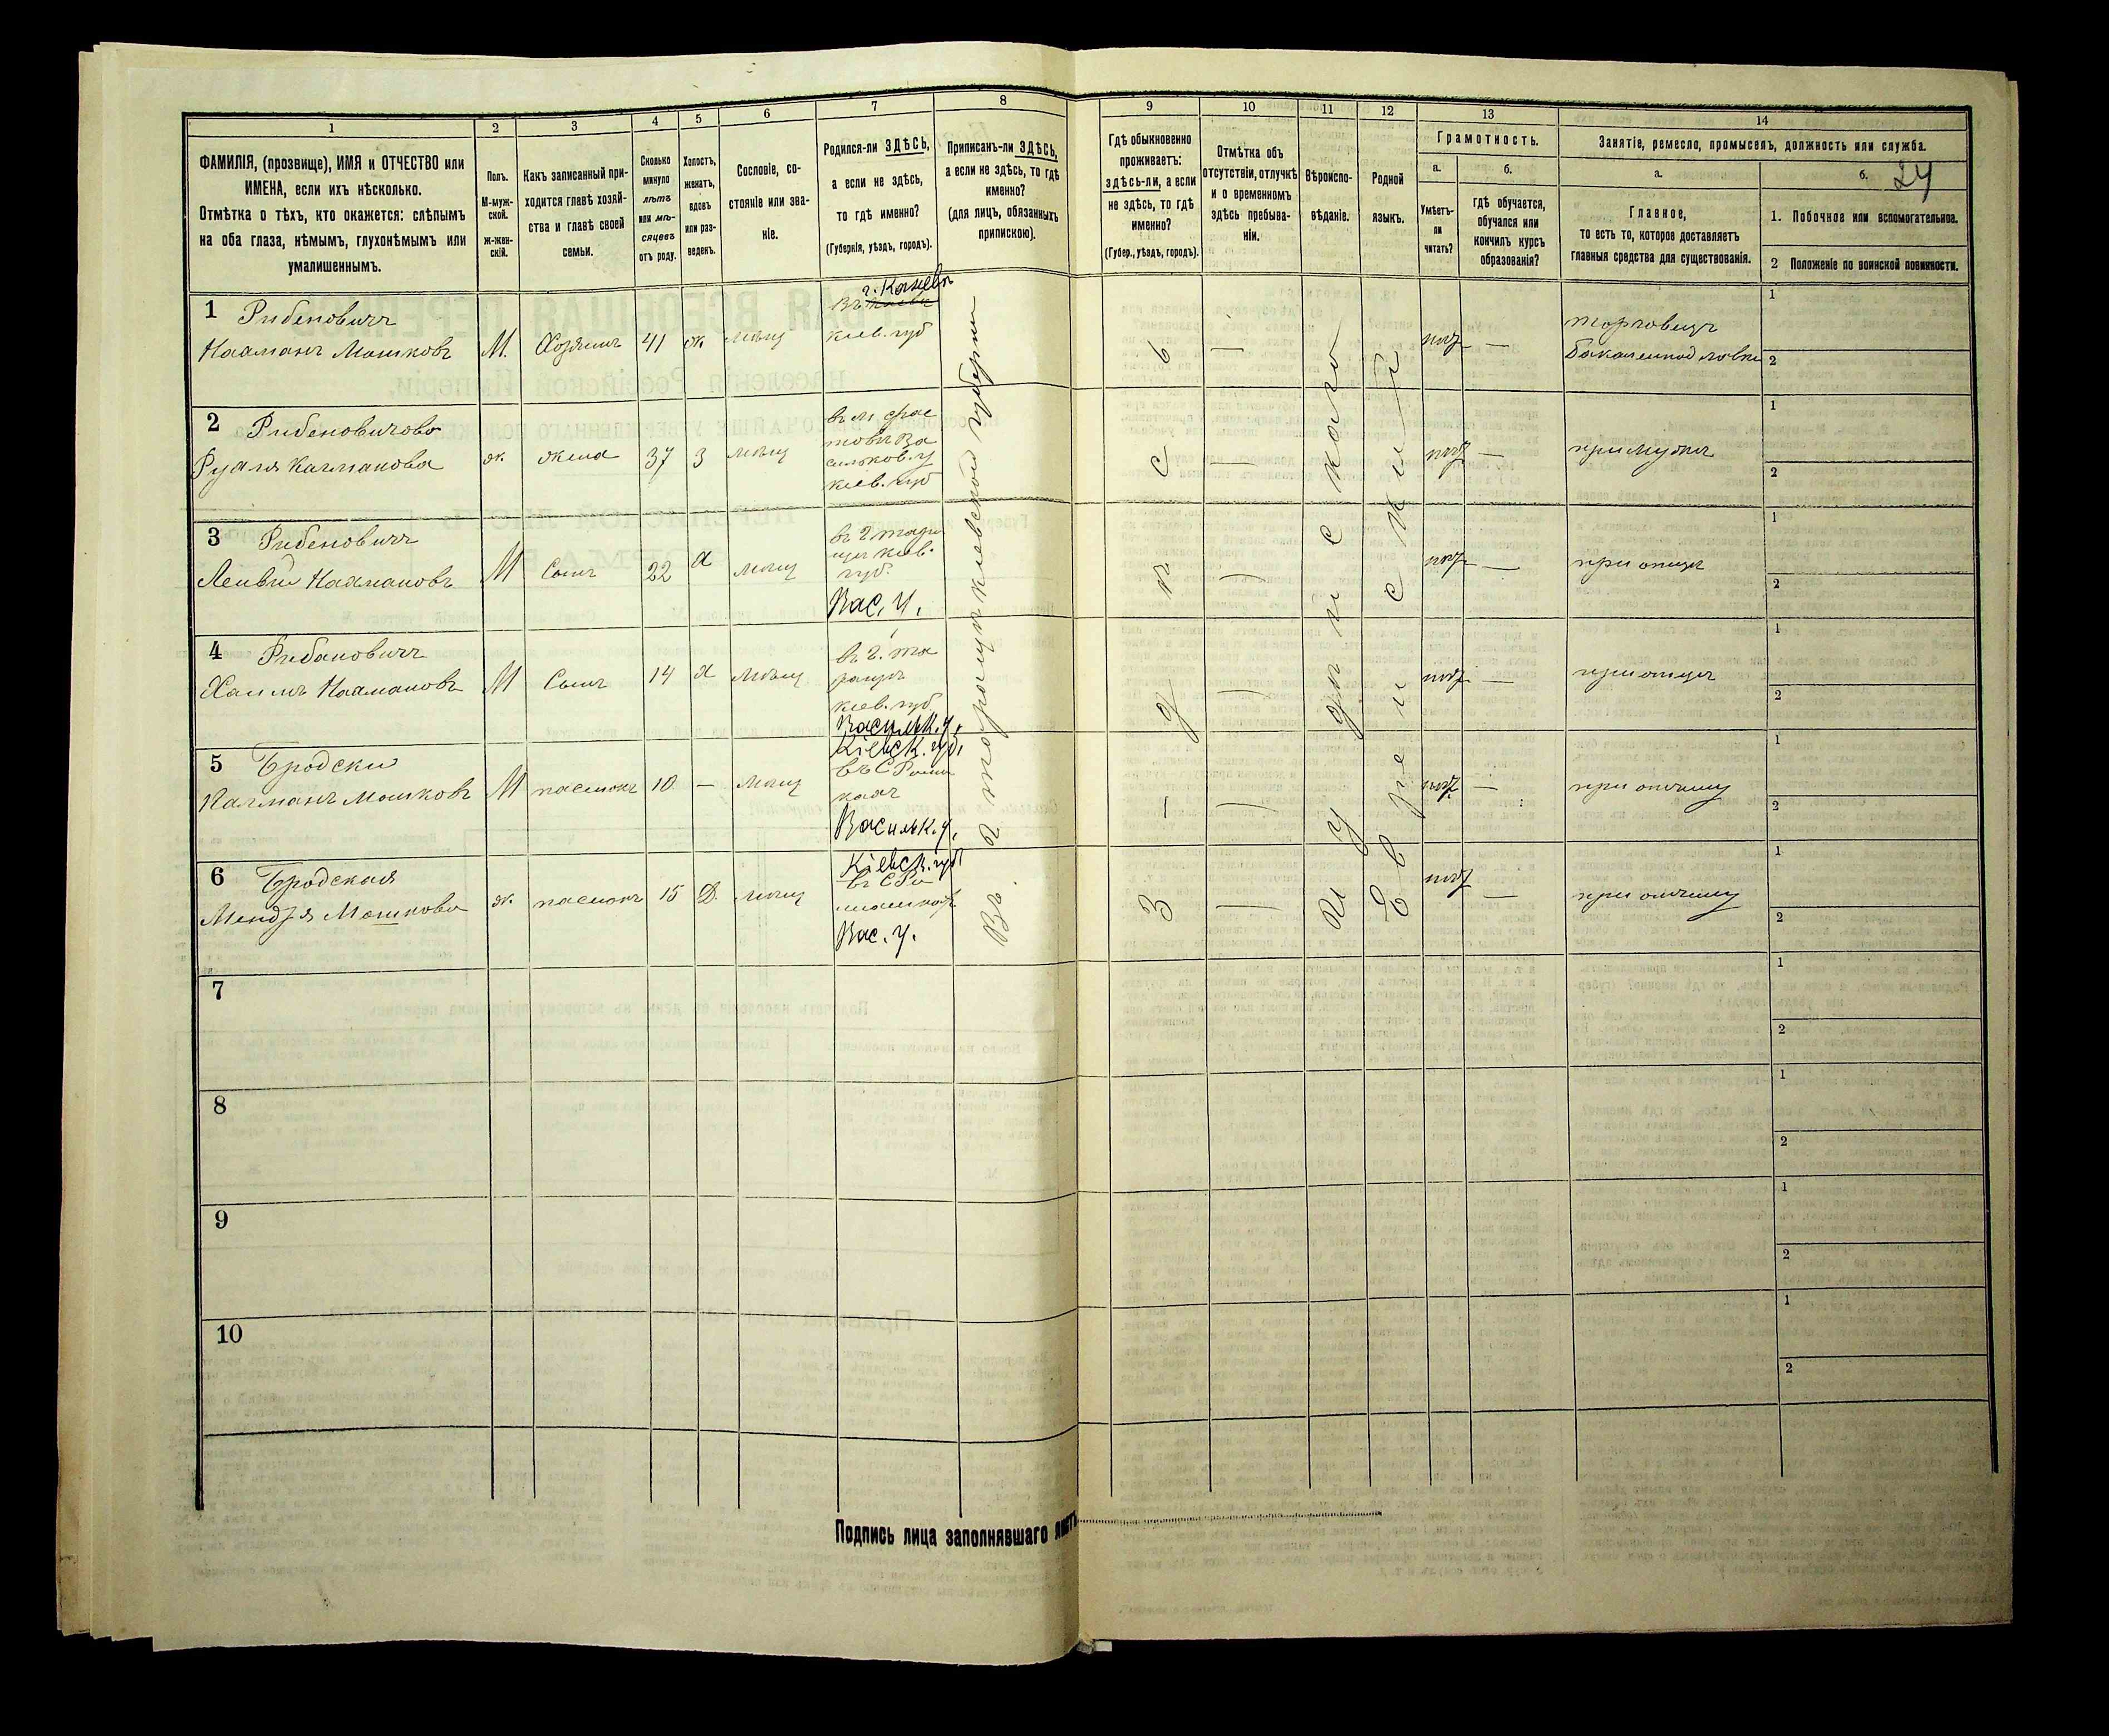 1
2
3
4
5
6
7
8
9
10
11
12
13
14
ФАМИЛІЯ, (прозвище), ИМЯ и ОТЧЕСТВО или
ИМЕНА, если ихъ нѣсколько.
Отмѣтка о тѣхъ, кто окажется: слѣпымъ
на оба глаза, нѣмымъ, глухонѣмымъ или
умалишеннымъ.
Полъ.
М-муж-
ской.
Ж-жен-
скій.
Какъ записанный при-
ходится главѣ хозяй-
ства и главѣ своей
семьи.
Сколько
минуло
лѣтъ
или мѣ-
сяцевъ
отъ роду.
Холостъ,
женатъ,
вдовъ
или раз-
веденъ.
Сословіе, со-
стояніе или зва-
ніе.
Родился-ли ЗДѢСЬ,
а если не здѣсь,
то гдѣ именно?
(Губернія, уѣздъ, городъ).
Приписанъ-ли ЗДѢСЬ,
а если не здѣсь, то гдѣ
именно?
(для лицъ, обязанныхъ
припискою).
Гдѣ обыкновенно
проживаетъ:
здѣсь-ли, а если
не здѣсь, то гдѣ
именно?
(Губер., уѣздъ, городъ).
Отмѣтка объ
отсутствіи, отлучкѣ
и о временномъ
здѣсь пребыва-
ніи.
Вѣроиспо-
вѣданіе.
Родной
языкъ.
Грамотность.
а.
Умѣетъ-
ли
читать?
б.
гдѣ обучается,
обучался или
кончилъ курсъ
образованія?
Занятіе, ремесло, промыселъ, должность или служба.
а.
Главное,
то есть то, которое доставляетъ
главныя средства для существованія.
б.
24
1. Побочное или вспомогательное.
2 Положеніе по воинской повинности.
1 Рибеновичъ
Нахманъ Мошковъ М. Хозяинъ 41 ж. мѣщ
г. Каневъ
кіев. губ
торговецъ
2 Рибеновичова
Калманова ж. жена 37 3 мѣщ
въ м фас
товѣ Ва
сильков. у
кіев. губ
при мужѣ
3 Рибеновичъ
Нахмановъ М Сынъ 22 х мѣщ
кіев.
губ.
Вас. у.
при отцѣ
4 Рибановичъ
Хаимъ Нахмановъ М Сынъ 14 х мѣщ
кіев. губ
Васильк. у.
при отцѣ
5 Бродски
Калманъ Мошковъ М пасынокъ 10 — мѣщ
Кіевск. губ.
Васильк. у.
при отчиму
6 Бродская
Мошкова ж. 15 Д. мѣщ
Кіевск. губ
Вас. у.
при отчиму
кіевской губерніи
Здѣсь
Іудейскаго
Еврейскій
7
8
9
10
1
2
1
2
1
2
1
2
1
2
1
2
1
2
1
2
1
2
1
2
Подпись лица заполнявшаго листъ